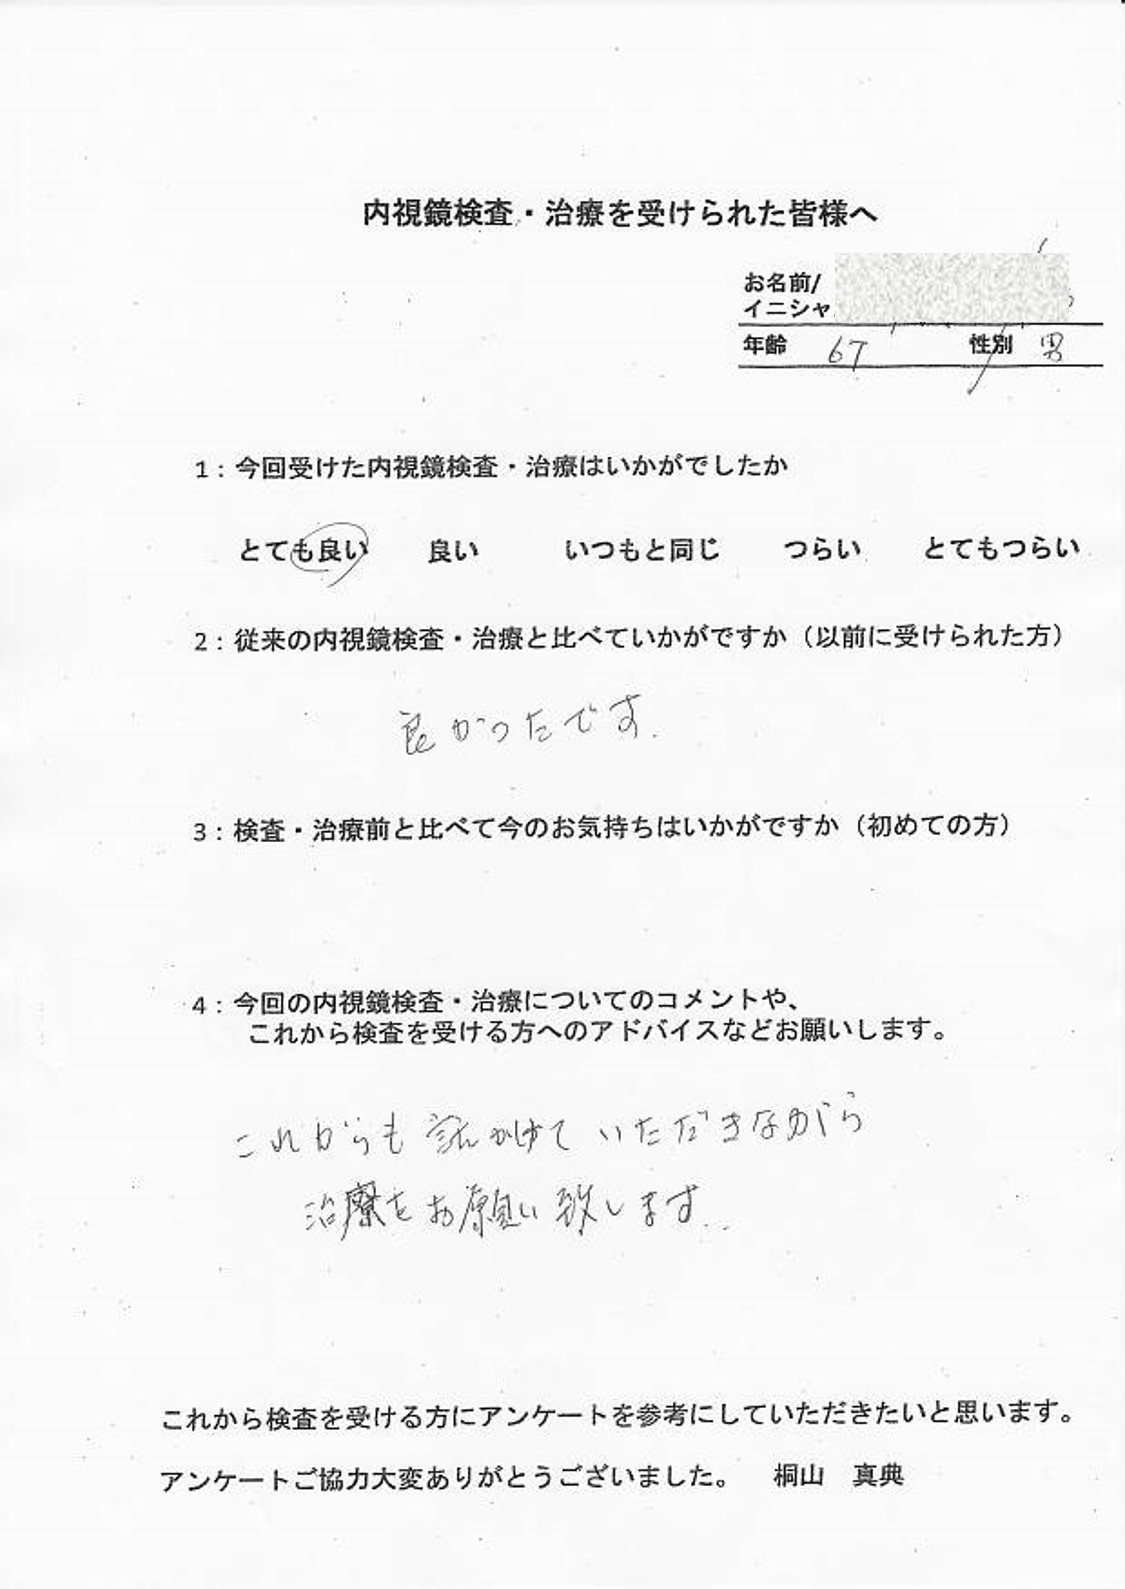 内視鏡検査・治療を受けられた皆様へ
お名前/
イニシャ
年齢 67 性別 男
1：今回受けた内視鏡検査・治療はいかがでしたか
とても良い 良い いつもと同じ つらい とてもつらい
2：従来の内視鏡検査・治療と比べていかがですか（以前に受けられた方）
良かったです.
3：検査・治療前と比べて今のお気持ちはいかがですか（初めての方）
4：今回の内視鏡検査・治療についてのコメントや、
これから検査を受ける方へのアドバイスなどお願いします。
これからも 話かけて いただきながら
治療をお願い致します..
これから検査を受ける方にアンケートを参考にしていただきたいと思います。
アンケートご協力大変ありがとうございました。 桐山 真典